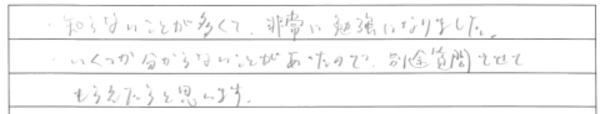 ・知らないことが多くて、非常に勉強になりました。
・いくつか分からないことがあったので、別途質問させて
もらえたらと思います。